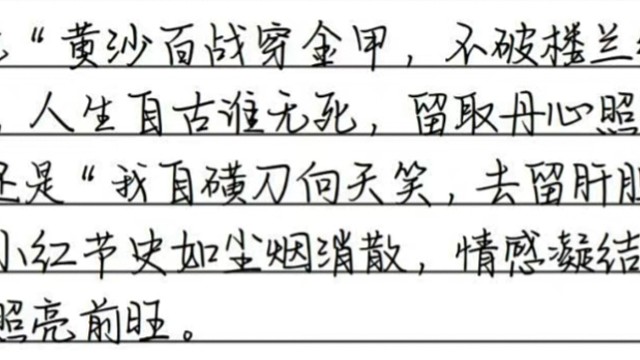 “黄沙百战穿金甲，不破楼兰
，人生自古谁无死，留取丹心照
还是“我自磺刀向天笑，去留肝胆
小红节史如尘烟消散，情感凝结
照亮前旺。